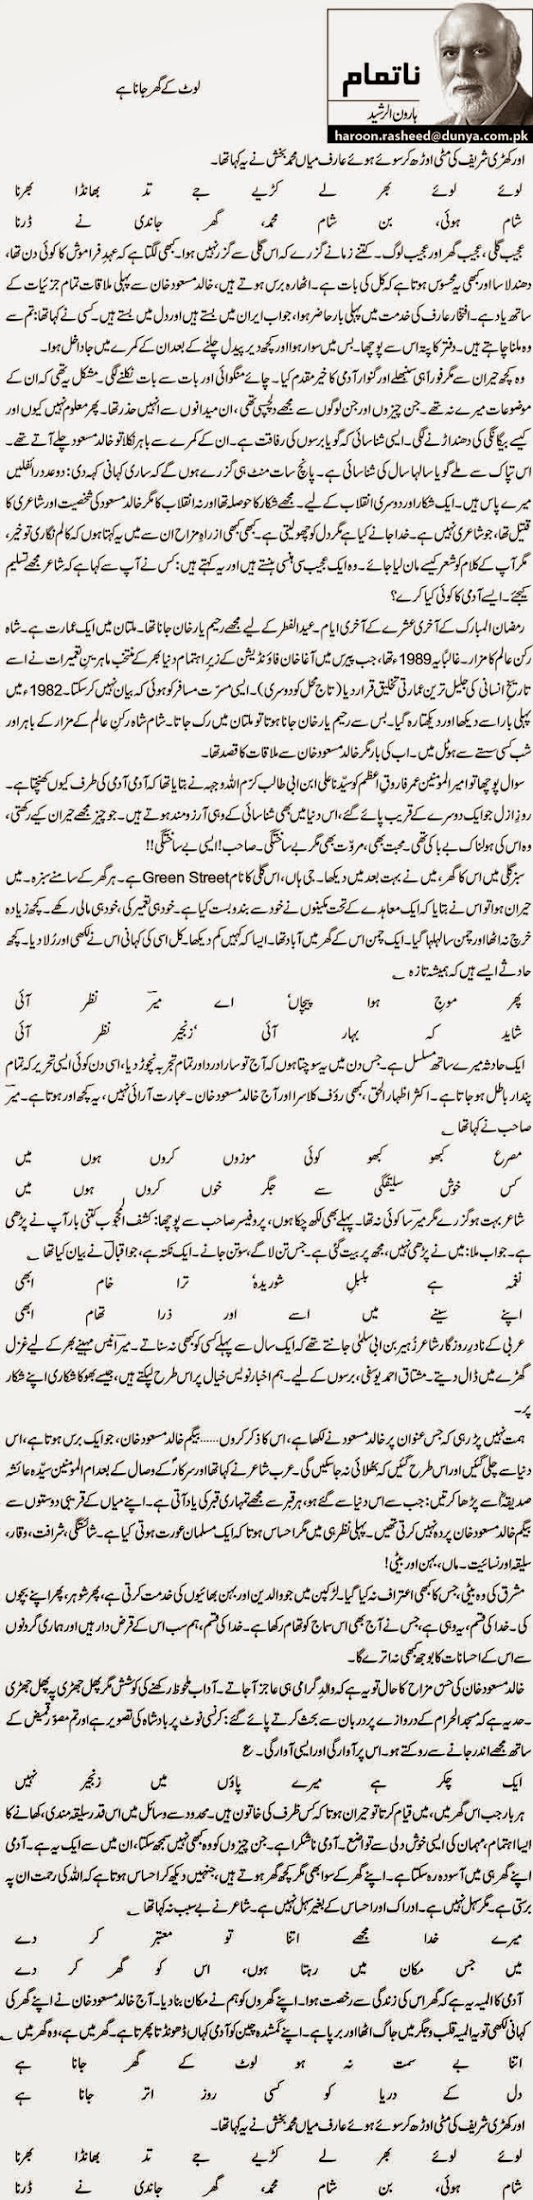 ناتمام
ہارون الرشید
haroon.rasheed@dunya.com.pk
لوٹ کے گھر جانا ہے
اور کھڑی شریف کی مٹی اوڑھ کر سوئے ہوئے عارف میاں محمد بخش نے یہ کہا تھا۔
لوئے لوئے بھر لے کڑیے جے تدھ بھانڈا بھرنا
شام ہوئی، بن شام محمد، گھر جاندی نے ڈرنا
عجیب گلی، عجیب گھر اور عجیب لوگ۔ کتنے زمانے گزرے کہ اس گلی سے گزر نہیں ہوا۔ کبھی لگتا ہے کہ عہدِ فراموش کا کوئی دن تھا،
دھندلا سا اور کبھی یہ محسوس ہوتا ہے کہ کل کی بات ہے۔ اٹھارہ برس ہوتے ہیں، خالد مسعود خان سے پہلی ملاقات تمام جزئیات کے
ساتھ یاد ہے۔ افتخار عارف کی خدمت میں پہلی بار حاضر ہوا، جو اب ایران میں بستے ہیں اور دل میں بستے ہیں۔ کسی نے کہا تھا: تم سے
وہ ملنا چاہتے ہیں۔ دفتر کا پتہ اس سے پوچھا۔ بس میں سوار ہوا اور کچھ دیر پیدل چلنے کے بعد ان کے کمرے میں جا داخل ہوا۔
وہ کچھ حیران سے مگر فوراً ہی سنبھلے اور گنوار آدمی کا خیر مقدم کیا۔ چائے منگوائی اور بات سے بات نکلنے لگی۔ مشکل یہ تھی کہ ان کے
موضوعات میرے نہ تھے۔ جن چیزوں اور جن لوگوں سے مجھے دلچسپی تھی، ان میدانوں سے انہیں حذر تھا۔ پھر معلوم نہیں کیوں اور
کیسے بیگانگی کی دھند اڑنے لگی۔ ایسی شناسائی کہ گویا برسوں کی رفاقت ہے۔ ان کے کمرے سے باہر نکلا تو خالد مسعود چلے آتے تھے۔
اس تپاک سے ملے گویا سالہا سال کی شناسائی ہے۔ پانچ سات منٹ ہی گزرے ہوں گے کہ ساری کہانی کہہ دی: دو عدد رائفلیں
میرے پاس ہیں۔ ایک شکار اور دوسری انقلاب کے لیے۔ مجھے شکار کا حوصلہ تھا اور نہ انقلاب کا مگر خالد مسعود کی شخصیت اور شاعری کا
قتیل تھا، جو شاعری نہیں ہے۔ خدا جانے کیا ہے مگر دل کو چھو لیتی ہے۔ کبھی کبھی از راہِ مزاح ان سے میں یہ کہتا ہوں کہ کالم نگاری تو خیر،
مگر آپ کے کلام کو شعر کیسے مان لیا جائے۔ وہ ایک عجیب سی ہنسی ہنستے ہیں اور یہ کہتے ہیں: کس نے آپ سے کہا ہے کہ شاعر مجھے تسلیم
کیجئے۔ ایسے آدمی کا کوئی کیا کرے؟
رمضان المبارک کے آخری عشرے کے آخری ایام۔ عید الفطر کے لیے مجھے رحیم یار خان جانا تھا۔ ملتان میں ایک عمارت ہے۔ شاہ
رکن عالم کا مزار۔ غالباً یہ 1989ء تھا، جب پیرس میں آغا خان فاؤنڈیشن کے زیرِ اہتمام دنیا بھر کے منتخب ماہرینِ تعمیرات نے اسے
تاریخِ انسانی کی جلیل ترین عمارتی تخلیق قرار دیا (تاج محل کو دوسری)۔ ایسی مسرت مسافر کو ہوئی کہ بیان نہیں کر سکتا۔ 1982ء میں
پہلی بار اسے دیکھا اور دیکھتا رہ گیا۔ بس سے رحیم یار خان جانا ہوتا تو ملتان میں رک جاتا۔ شام شاہ رکنِ عالم کے مزار کے باہر اور
شب کسی سستے سے ہوٹل میں۔ اب کی بار مگر خالد مسعود خان سے ملاقات کا قصد تھا۔
سوال پوچھا تو امیر المومنین عمر فاروقِ اعظم کو سیدنا علی ابن ابی طالب کرم اللہ وجہہ نے بتایا تھا کہ آدمی آدمی کی طرف کیوں کھنچتا ہے۔
روزِ ازل جو ایک دوسرے کے قریب پائے گئے، اس دنیا میں بھی شناسائی کے وہی آرزو مند ہوتے ہیں۔ جو چیز مجھے حیران کیے رکھتی،
وہ اس کی ہولناک بے باکی تھی۔ محبت بھی، مروّت بھی مگر بے ساختگی۔ صاحب! ایسی بے ساختگی!!
سبز گلی میں اس کا گھر، میں نے بہت بعد میں دیکھا۔ جی ہاں، اس گلی کا نام Green Street ہے۔ ہر گھر کے سامنے سبزہ۔ میں
حیران ہوا تو اس نے بتایا کہ ایک معاہدے کے تحت مکینوں نے خود سے بندوبست کیا ہے۔ خود ہی تعمیر کی، خود ہی مالی رکھے۔ کچھ زیادہ
خرچ نہ اٹھا اور چمن سا لہلہا گیا۔ ایک چمن اس کے گھر میں آباد تھا۔ ایسا کہ کہیں کم دیکھا۔ کل اسی کی کہانی اس نے لکھی اور رُلا دیا۔ کچھ
حادثے ایسے ہیں کہ ہمیشہ تازہ ؎
پھر موجِ ہوا پیچاں اے میرؔ نظر آئی
شاید کہ بہار آئی، زنجیر نظر آئی
ایک حادثہ میرے ساتھ مسلسل ہے۔ جس دن میں یہ سوچتا ہوں کہ آج تو سارا درد اور تمام تجربہ نچوڑ دیا، اسی دن کوئی ایسی تحریر کہ تمام
پندار باطل ہو جاتا ہے۔ اکثر اظہار الحق، کبھی رؤف کلاسرا اور آج خالد مسعود خان۔ عبارت آرائی نہیں، یہ کچھ اور ہوتا ہے۔ میرؔ
صاحب نے کہا تھا ؎
مصرع کبھو کبھو کوئی موزوں کروں ہوں میں
کس خوش سلیقگی سے جگر خوں کروں ہوں میں
شاعر بہت ہو گزرے مگر میرؔ سا کوئی نہ تھا۔ پہلے بھی لکھ چکا ہوں، پروفیسر صاحب سے پوچھا: کشف المحجوب کتنی بار آپ نے پڑھی
ہے۔ جواب ملا: میں نے پڑھی نہیں، مجھ پر بیت گئی ہے۔ جس تن لاگے، سو تن جانے۔ ایک نکتہ ہے، جو اقبالؔ نے بیان کیا تھا ؎
نغمہ ہے بلبلِ شوریدہ ترا خام ابھی
اپنے سینے میں اسے اور ذرا تھام ابھی
عربی کے نادرِ روزگار شاعر زُہیر بن ابی سلمیٰ جانتے تھے کہ ایک سال سے پہلے کسی کو بھی نہ سناتے۔ میر انیس مہینے بھر کے لیے غزل
گھڑے میں ڈال دیتے۔ مشتاق احمد یوسفی، برسوں کے لیے۔ ہم اخبار نویس خیال پر اس طرح لپکتے ہیں، جیسے بھوکا شکاری اپنے شکار
پر۔
ہمت نہیں پڑ رہی کہ جس عنوان پر خالد مسعود نے لکھا ہے، اس کا ذکر کروں...... بیگم خالد مسعود خان، جو ایک برس ہوتا ہے، اس
دنیا سے چلی گئیں اور اس طرح گئیں کہ بھلائی نہ جا سکیں گی۔ عرب شاعر نے کہا تھا اور سرکارؐ کے وصال کے بعد ام المومنین سیدہ عائشہ
صدیقہؓ اسے پڑھا کرتیں: جب سے اس دنیا سے گئے ہو، ہر قبر سے مجھے تمہاری قبر کی یاد آتی ہے۔ اپنے میاں کے قریبی دوستوں سے
بیگم خالد مسعود خان پردہ نہیں کرتی تھیں۔ پہلی نظر ہی میں مگر احساس ہوتا کہ ایک مسلمان عورت ہوتی کیا ہے۔ شائستگی، شرافت، وقار،
سلیقہ اور نسائیت۔ ماں، بہن اور بیٹی!
مشرق کی وہ بیٹی، جس کا کبھی اعتراف نہ کیا گیا۔ لڑکپن میں جو والدین اور بہن بھائیوں کی خدمت کرتی ہے، پھر شوہر، پھر اپنے بچوں
کی۔ خدا کی قسم، یہ وہی ہے، جس نے آج بھی اس سماج کو تھام رکھا ہے۔ خدا کی قسم، ہم سب اس کے قرض دار ہیں اور ہماری گردنوں
سے اس کے احسانات کا بوجھ کبھی نہ اترے گا۔
خالد مسعود خان کی حسِ مزاح کا حال تو یہ ہے کہ والدِ گرامی ہی عاجز آ جاتے۔ آداب ملحوظ رکھنے کی کوشش مگر پھلجھڑی پہ پھلجھڑی
۔ حد یہ ہے کہ مسجد الحرام کے دروازے پر دربان سے بحث کرتے پائے گئے: کرنسی نوٹ پر بادشاہ کی تصویر ہے اور تم مصوّر قمیض کے
ساتھ مجھے اندر جانے سے روکتے ہو۔ اس پر آوارگی اور ایسی آوارگی۔ ع
ایک چکر ہے میرے پاؤں میں زنجیر نہیں
ہر بار جب اس گھر میں، میں قیام کرتا تو حیران ہوتا کہ کس ظرف کی خاتون ہیں۔ محدود سے وسائل میں اس قدر سلیقہ مندی، کھانے کا
ایسا اہتمام، مہمان کی ایسی خوش دلی سے تواضع۔ آدمی ناشکرا ہے۔ جن چیزوں کو وہ کبھی نہیں سمجھ سکتا، ان میں سے ایک یہ ہے۔ آدمی
اپنے گھر ہی میں آسودہ رہ سکتا ہے۔ اپنے گھر کے سوا بھی مگر کچھ گھر ہوتے ہیں، جنہیں دیکھ کر احساس ہوتا ہے کہ اللہ کی رحمت ان پہ
برستی ہے۔ مگر سہل نہیں ہے۔ ادراک اور احساس کے بغیر سہل نہیں ہے۔ شاعر نے بے سبب نہ کہا تھا ؎
میرے خدا مجھے اتنا تو معتبر کر دے
میں جس مکان میں رہتا ہوں، اس کو گھر کر دے
آدمی کا المیہ یہ ہے کہ گھر اس کی زندگی سے رخصت ہوا۔ اپنے گھروں کو ہم نے مکان بنا دیا۔ آج خالد مسعود خان نے اپنے گھر کی
کہانی لکھی تو یہ المیہ قلب و جگر میں جاگ اٹھا اور برپا ہے۔ اپنے گمشدہ چین کو آدمی کہاں ڈھونڈتا پھرتا ہے۔ گھر میں ہے، وہ گھر میں ؎
اتنا بے سمت نہ ہو لوٹ کے گھر جانا ہے
دل کے دریا کو کسی روز اتر جانا ہے
اور کھڑی شریف کی مٹی اوڑھ کر سوئے ہوئے عارف میاں محمد بخش نے یہ کہا تھا۔
لوئے لوئے بھر لے کڑیے جے تدھ بھانڈا بھرنا
شام ہوئی، بن شام محمد، گھر جاندی نے ڈرنا